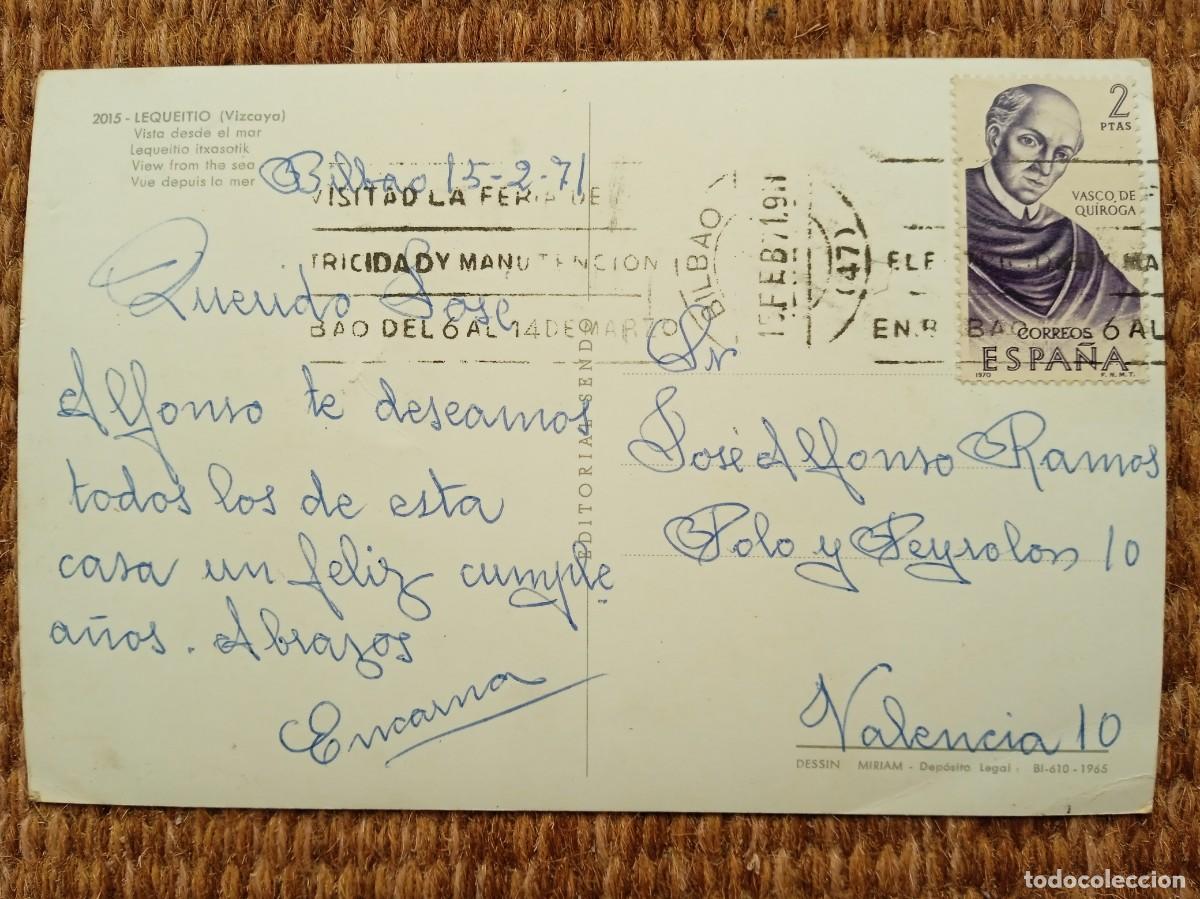 2015 - LEQUEITIO (Vizcaya)
Vista desde el mar
Lequeitio itxasotik
View from the sea
Vue depuis la mer
Bilbao 15-2-71
Querido José
Alfonso te deseamos
todos los de esta
casa un feliz cumple
años. Abrazos
Encarna
EDITORIAL SENDO
VISITAD LA FERIA DE
TRICIDAD Y MANUTENCION
BAO DEL 6 AL 14 DE MARZO
BILBAO
FEB 71
(47)
ELE
MA
EN B BAO 6 AL
2
PTAS
VASCO DE
QUIROGA
CORREOS
ESPAÑA
1970 F.N.M.T.
Sr
José Alfonso Ramos
Polo y Peyrolon 10
Valencia 10
DESSIN MIRIAM - Depósito Legal : BI-610-1965
todocoleccion